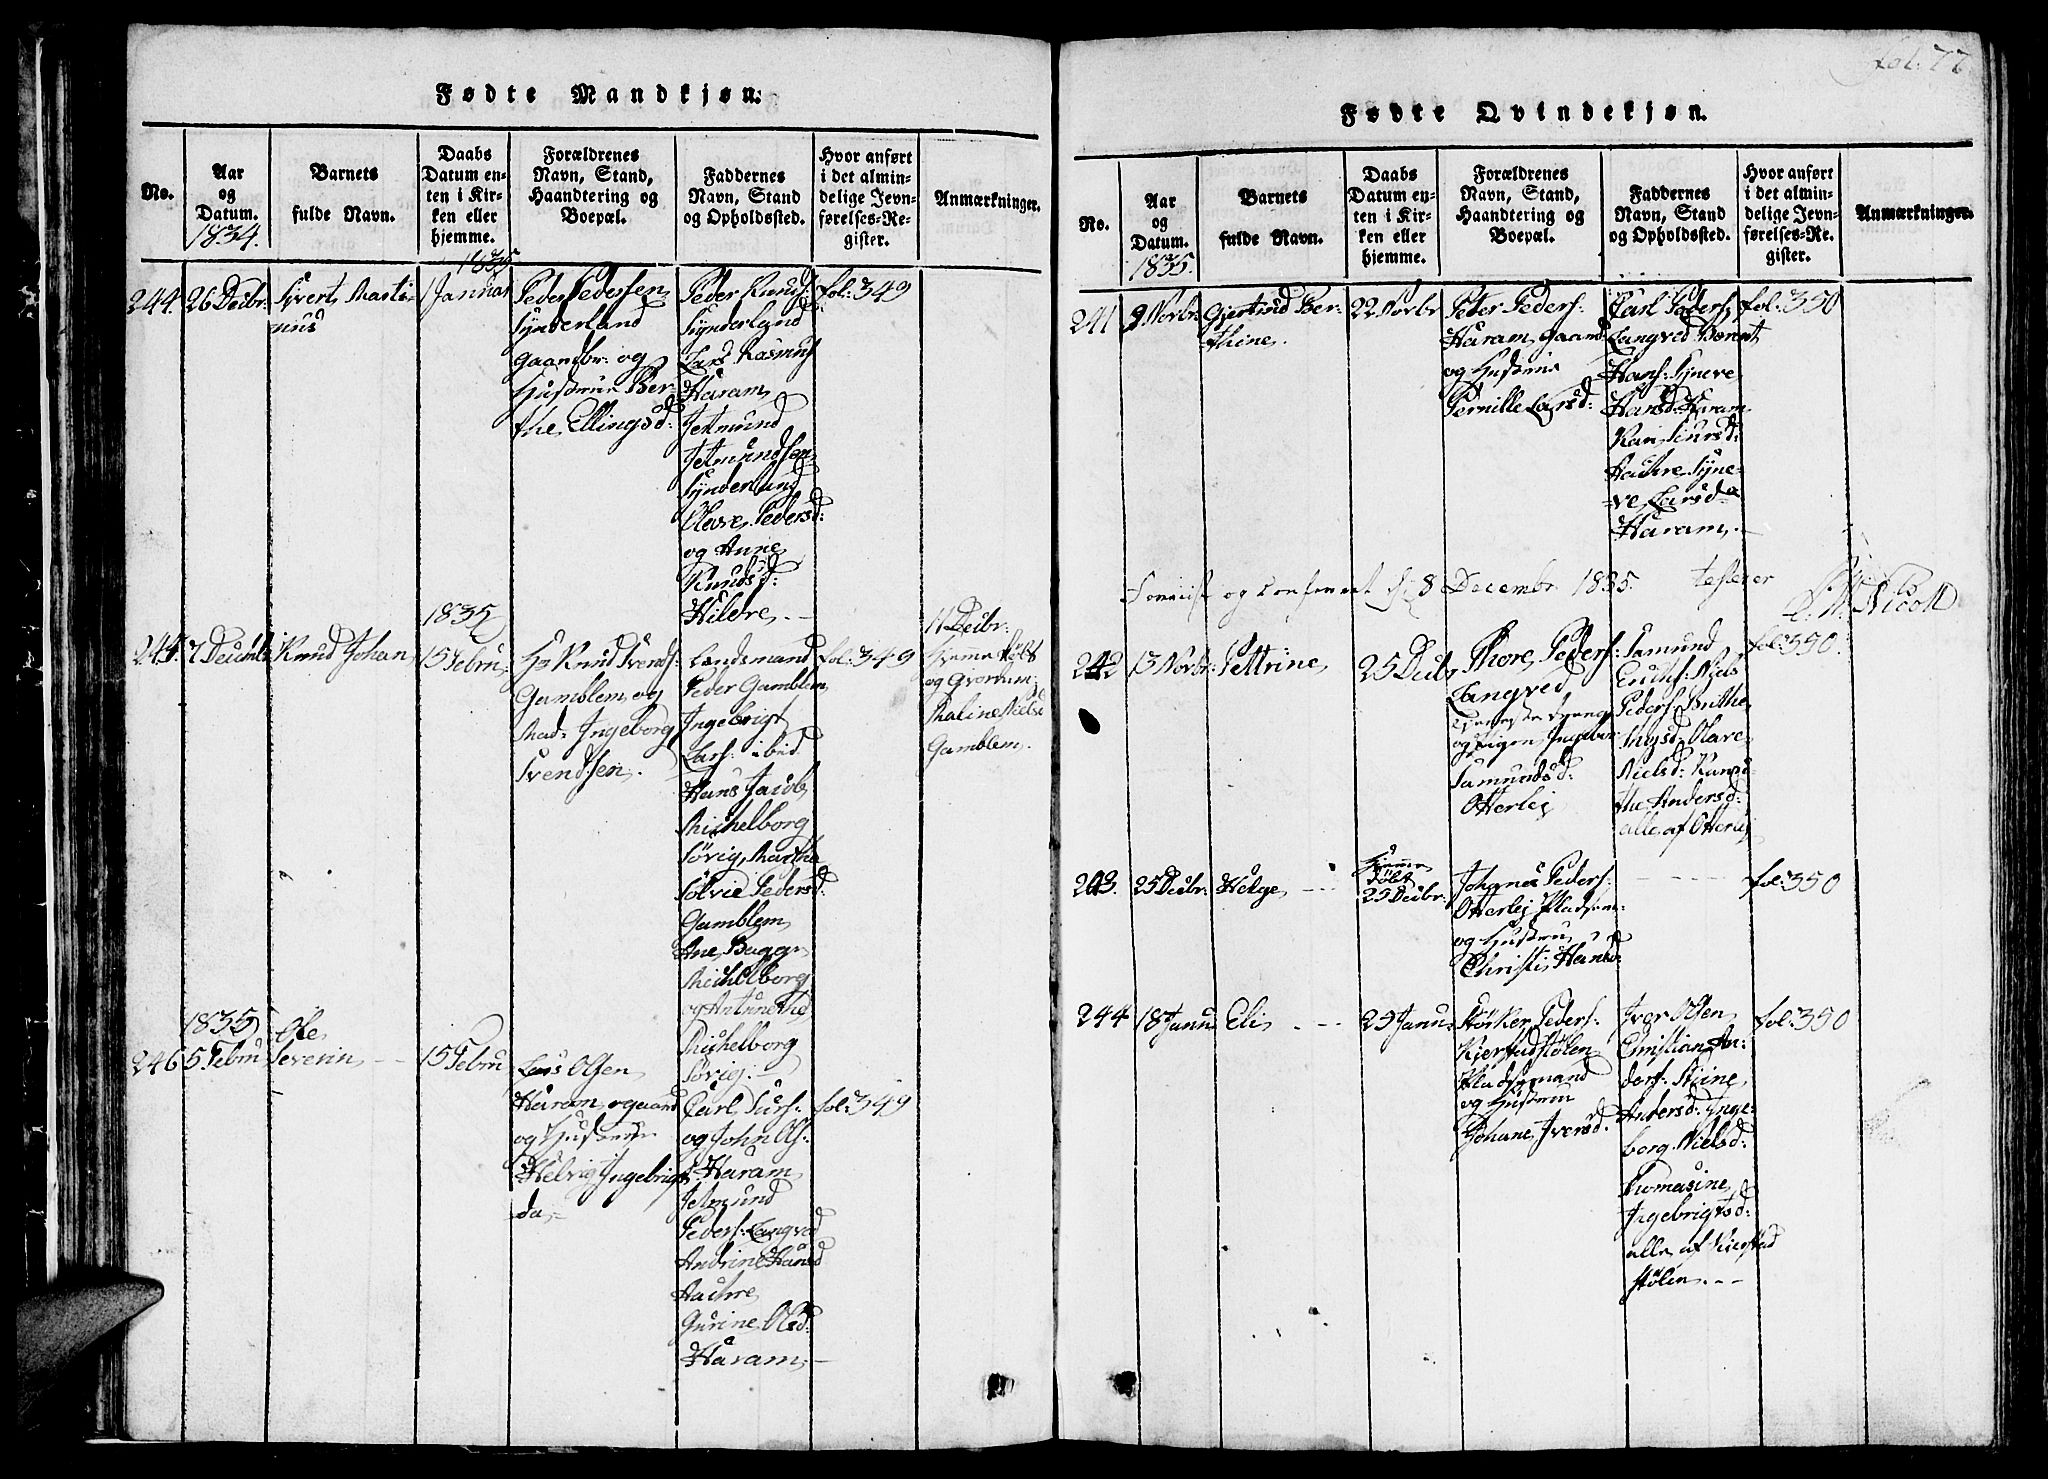 Fødte Mandkjøn.
No.
Aar
og
Datum.
1834.
Barnets
fulde Navn.
Daabs
Datum en-
ten i Kir-
ken eller
hjemme.
1835
Forældrenes
Navn, Stand,
Haandtering og
Boepæl.
Faddernes
Navn, Stand
og Opholdssted.
Hvor anført
i det almin-
delige Jevn-
førelses-Re-
gister.
Anmærkninger.
244.
26 Decbr:
Syvert Marti-
nus
1 Januar
Peder Pedersen
Synderland
Gaardbr: og
Hustrue Ber-
the Ellingsd:
Peder Knuds:
Synderland
Lars Rasmus
Haram
Jetmund
Jetmundsen
Synderland
Olave Pedersd:
og Anne
Knudsd:
Hildre. -
fol: 349
244.
7 Decemb:
Knud Johan
1835
15 Febru:
Hr Knud Svends:
Gamblem og
Mad: Ingeborg
Svendsen.
Landsmand
Peder Gamblem
Ingebrigt
Lars: ibid
Hans Jacob
Michelborg
Sövig, Martha
Sölvie Pedersd:
Gamblem
Ane Bugge
Michelborg
og Antunette
Michelborg
Sövig. -
fol: 349
11 Decbr:
hjemme döbt
og
Maline Niels:
Gamblem.
1835
246
5 Febru
Ole
Severin - -
15 Febru
Lars Olsen
Haram, ogaard
og Hustrue
Helvig Ingebrigts
da, -
Carl Surs:
og John Ols:
Haram
Jetmund
Peders: Langved
Andrine Hansd
Aackre
Gurine Olsd:
Haram, -
fol: 349
fol: 77
Fødte Qvindekjøn.
No.
Aar
og
Datum.
1835.
Barnets
fulde Navn.
Daabs
Datum en-
ten i Kir-
ken eller
hjemme.
Forældrenes
Navn, Stand,
Haandtering og
Boepæl.
Faddernes
Navn, Stand
og Opholdssted.
Hvor anført
i det almin-
delige Jevn-
førelses-Re-
gister.
Anmærkninger.
241
9 Novbr:
Gjertrud Ber-
thine.
22 Novbr
Peter Peders:
Haram, Gaard
og Hustrue
Pernille Larsd:
Carl Peders,
Langved Bernt
Hans: Syneve
Hansd: Haram
Kari Siursd:
Aackre Syne-
ve Larsd
Haram. -
fol: 350
og Confereret d: 8 Decembr 1835. testerer
Nicoll
242
13 Novbr:
Pettrine
25 Decbr
Thore Peders:
Langved
og Pigen
Samundsd:
Otterlej
Samund
Ericks: Niels
Peders: Brithe
Olave
Nielsd:
the Andersd:
alle af Otterlej
fol: 350.
243.
25 Decbr:
Helge - - -
hjemme
döbt
25 Decbr:
Johanes Peders:
Otterlej Pladsm:
og Hustrue
Christi Hansd:
fol: 350
244
18 Janu:
Eli, - - -
25 Janu:
Störker Peders:
Kierstadstölen
Pladsmand
og Hustrue
Johane Iversd.
Iver Olsen
Christian An-
ders: Stine
Andersd: Inge-
borg Nielsd:
Thomasine
Ingebrigtsd:
alle af Kierstad
stölen. - -
fol: 350